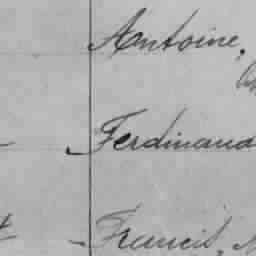 Antoine,
Ferdinand
Francis,